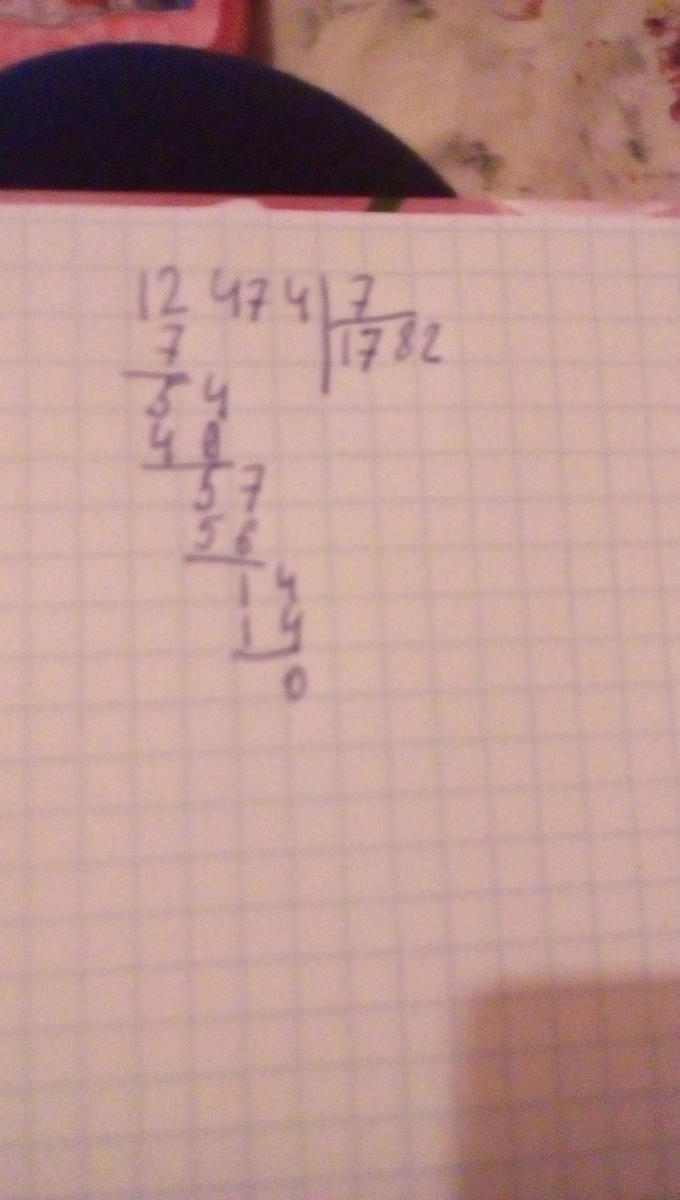 12 474 | 7
7 | 1782
54
48
57
56
14
14
0